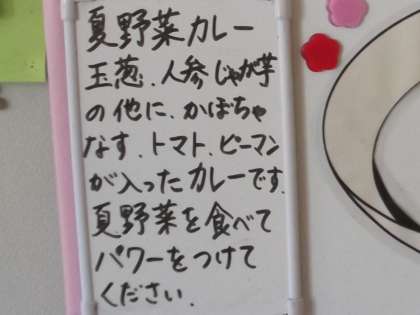 夏野菜カレー
玉葱、人参じゃが芋
の他に、かぼちゃ
なす、トマト、ピーマン
が入ったカレーです。
夏野菜を食べて
パワーをつけて
ください。